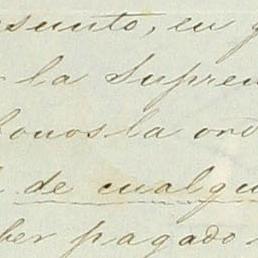 asunto, en
la Suprem
la ord
de cualqui
ber pagado